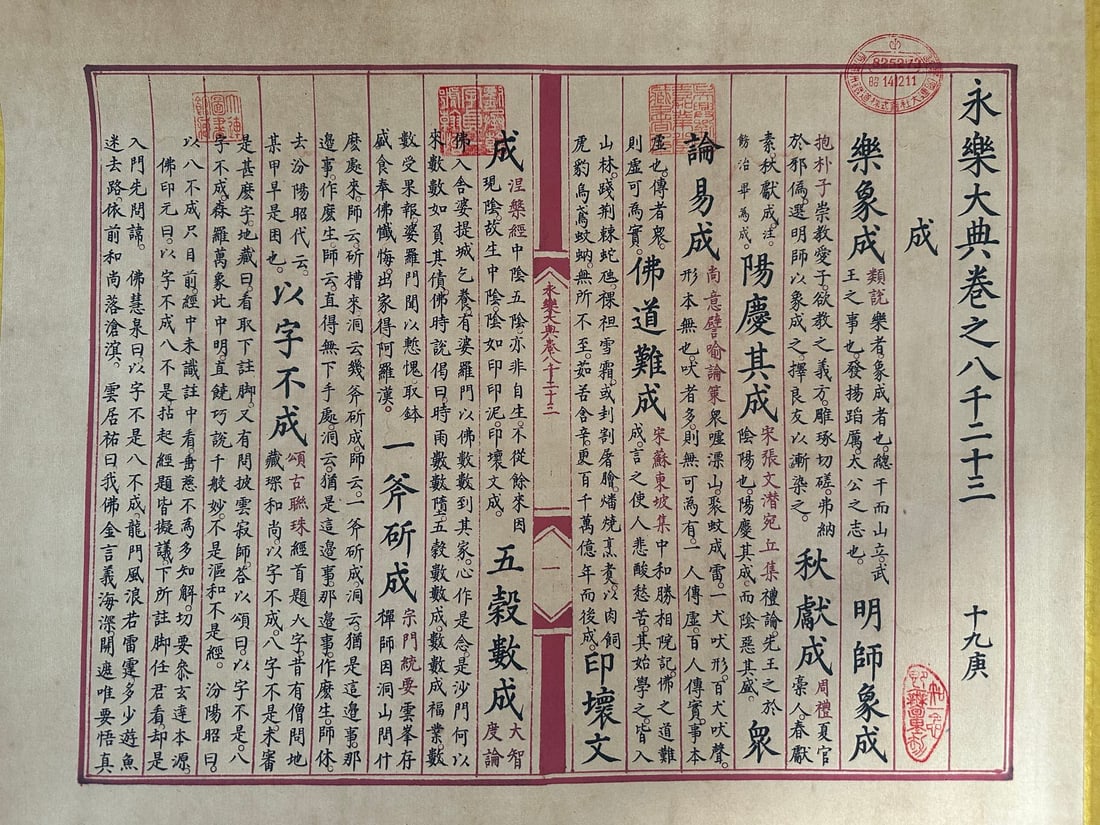 永樂大典卷之八千二十三 十九庚
成
樂象成 類說樂者。象成者也。總干而山立。武
王之事也。發揚蹈厲。太公之志也。 明師象成
抱朴子崇教愛子。欲教之義方。雕琢切磋。弗納
於邪偽。選明師以象成之。擇良友以漸染之。 秋獻成 周禮夏官
稾人。春獻
素。秋獻成。注。
飭治畢為成。 陽慶其成 宋張文潛宛丘集禮論。先王之於
陰陽也。陽慶其成。而陰惡其盛。 眾
論易成 尚意譬喻論策。眾噓漂山。聚蚊成雷。一犬吠形。百犬吠聲。
形本無也。吠者多。則無可為有。一人傳虛。百人傳實。事本
虛也。傳者眾。
則虛可為實。 佛道難成 宋蘇東坡集中和勝相院記。佛之道難
成。言之使人悲酸愁苦。其始學之。皆入
山林。踐荊棘蛇虺。祼袒雪霜。或刲割屠膾。燔燒烹煮。以肉飼
虎豹烏鳶蚊蚋。無所不至。茹苦含辛。更百千萬億年而後成。 印壞文
永樂大典卷八千二十三
一
成 涅槃經中陰五陰。亦非自生。不從餘來。因
現陰。故生中陰。陰如印印泥。印壞文成。 五穀數成 大智
度論
佛入舍婆提城乞養。有婆羅門以佛數數到其家。心作是念。是沙門何以
來數數。如負其債。佛時說偈曰。時雨數數墮。五穀數數成。數數成福業。數
數受果報。婆羅門聞以慙愧。取鉢
盛食奉佛懺悔。出家得阿羅漢。 一斧斫成 宗門統要雲峯存
禪師因洞山問什
麽處來。師云。斫槽來。洞云。幾斧斫成。師云。一斧斫成。洞云。猶是這邊事。那
邊事。作麽生。師云。直得無下手處。洞云。猶是這邊事。那邊事。作麽生。師休。
去汾陽昭代云。
某甲早是困也。 以字不成 頌古聯珠經首題八字。昔有僧問地
藏琛和尚。以字不成。八字不是。未審
是甚麽字。地藏曰。看取下註脚。又有問披雲寂師。答以頌曰。以字不是。八
字不成。森羅萬象此中明。直饒巧說千般妙。不是漚和不是經。 汾陽昭曰。
以八不成尺目前。經中未識註中看。慈不為多知解。切要叅玄達本源。
佛印元曰。以字不成八不是。拈起經題皆擬議。下所註脚任君看。却是
入門先問諱。 佛慧泉曰。以字不是八不成。龍門風浪若雷霆。多少遊魚
迷去路。依前和尚落滄溟。 雲居祐曰。我佛金言義海深。開遮唯要悟真
昭14 12 11